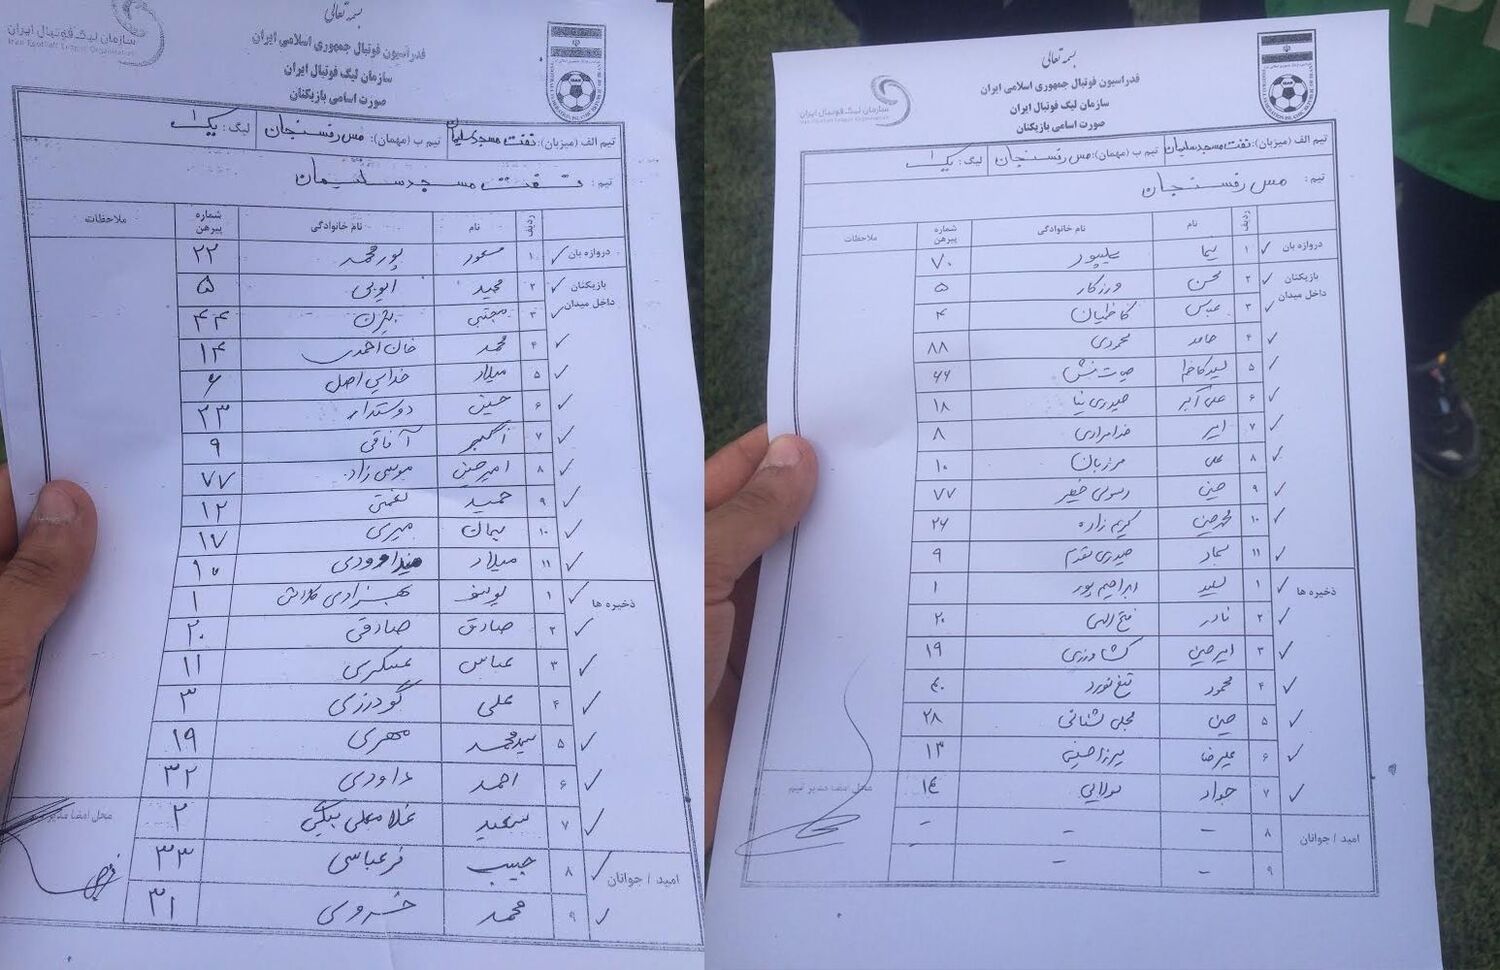 بسمه تعالی
سازمان لیگ فوتبال ایران
Iran Football League Organization
فدراسیون فوتبال جمهوری اسلامی ایران
سازمان لیگ فوتبال ایران
صورت اسامی بازیکنان
تیم الف (میزبان): نفت مسجدسلیمان تیم ب (مهمان): مس رفسنجان لیگ: یک
تیم: نفت مسجدسلیمان
ردیف نام نام خانوادگی شماره پیرهن ملاحظات
دروازه بان ۱ مسعود پورمحمد ۲۲
بازیکنان داخل میدان ۲ مجید ایوبی ۵
۳ مجتبی ۴۴
۴ محمد خان احمدی ۱۴
۵ میلاد خدایی اصل ۶
۶ حسین دوستدار ۲۳
۷ آقاقی ۹
۸ امیرحسین موسی زاده ۷۷
۹ حمید نعمتی ۱۲
۱۰ پیمان میری ۱۷
۱۱ میلاد میداودی ۹۰
ذخیره ها ۱ یوسف بهزادی ۱
۲ صادق صادقی ۲۰
۳ عباس عسکری ۱۱
۴ علی گودرزی ۳
۵ سیدمحمد مهری ۱۹
۶ احمد داودی ۳۲
۷ سعید غلامعلی بیگی ۲
امید / جوانان ۸ حبیب فرعباسی ۳۳
۹ محمد خسروی ۳۱
محل امضا مدیر تیم
بسمه تعالی
سازمان لیگ فوتبال ایران
Iran Football League Organization
فدراسیون فوتبال جمهوری اسلامی ایران
سازمان لیگ فوتبال ایران
صورت اسامی بازیکنان
تیم الف (میزبان): نفت مسجدسلیمان تیم ب (مهمان): مس رفسنجان لیگ: یک
تیم: مس رفسنجان
ردیف نام نام خانوادگی شماره پیرهن ملاحظات
دروازه بان ۱ نیما ۷۰
بازیکنان داخل میدان ۲ محسن ورزکار ۵
۳ عباس کاظمیان ۴
۴ حامد محمودی ۸۸
۵ سیدکاظم ۶۶
۶ علی اکبر حیدری نیا ۱۸
۷ امیر خدامرادی ۸
۸ علی مرزبان ۱۰
۹ حسین ۷۷
۱۰ محمدحسین کریم زاده ۲۶
۱۱ سجاد حیدری مقدم ۹
ذخیره ها ۱ سعید ابراهیم پور ۱
۲ نادر فتح الهی ۲۰
۳ امیرحسین کشاورزی ۱۹
۴ محمود تیغ نورد ۴۰
۵ حسین ۲۸
۶ علیرضا میرزاحسینی ۱۳
۷ جواد مولایی ۱۴
امید / جوانان ۸ - - -
۹ - -
محل امضا مدیر تیم